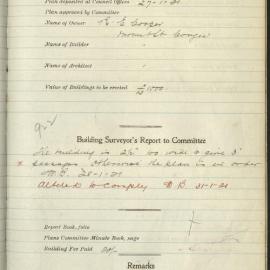 Plan deposited at Council Offices 27-1-21
Plan approved by Committee
Name of Owner E. E. Cooper
Name of Builder
Name of Architect
Value of Buildings to be erected
Building Surveyor's Report to Committee
The building is 2½" too wide to give 3'
passages otherwise the plan is in order
M B. 28-1-21
Altered to comply M B. 31-1-21
Report Book, folio
Plans Committee Minute Book, page
Building Fee Paid
Remarks